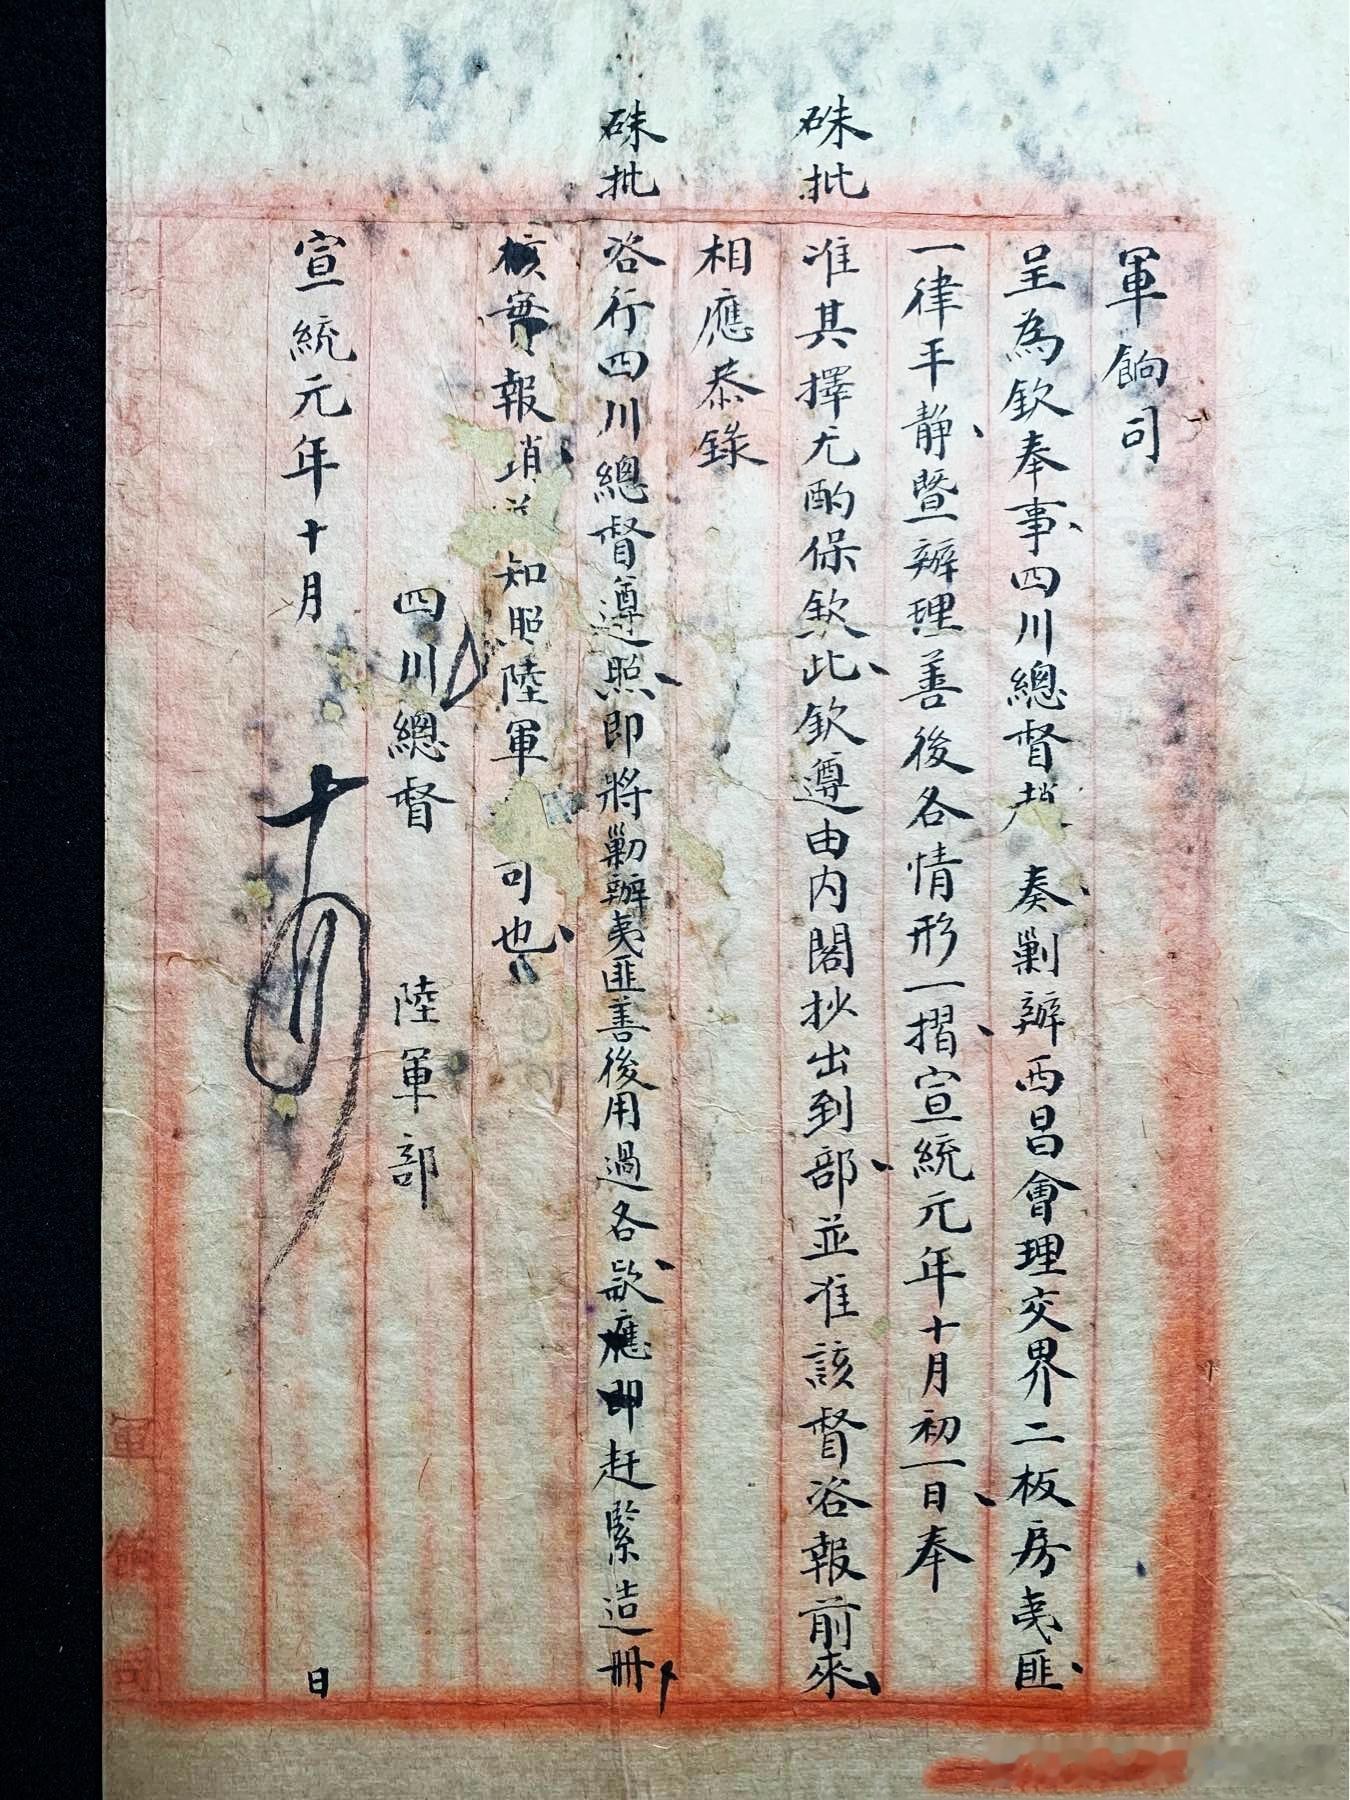 軍餉司
呈為欽奉事四川總督趙 奏剿辦西昌會理交界二板房夷匪
一律平靜暨辦理善後各情形一摺宣統元年十月初一日奉
硃批
准其擇尤酌保欽此欽遵由內閣抄出到部並准該督咨報前來
相應恭錄
硃批
咨行四川總督遵照即將剿辦夷匪善後用過各款應即赶緊造冊
核實報消 知照陸軍 司也
四川總督 陸軍部
宣統元年十月 日